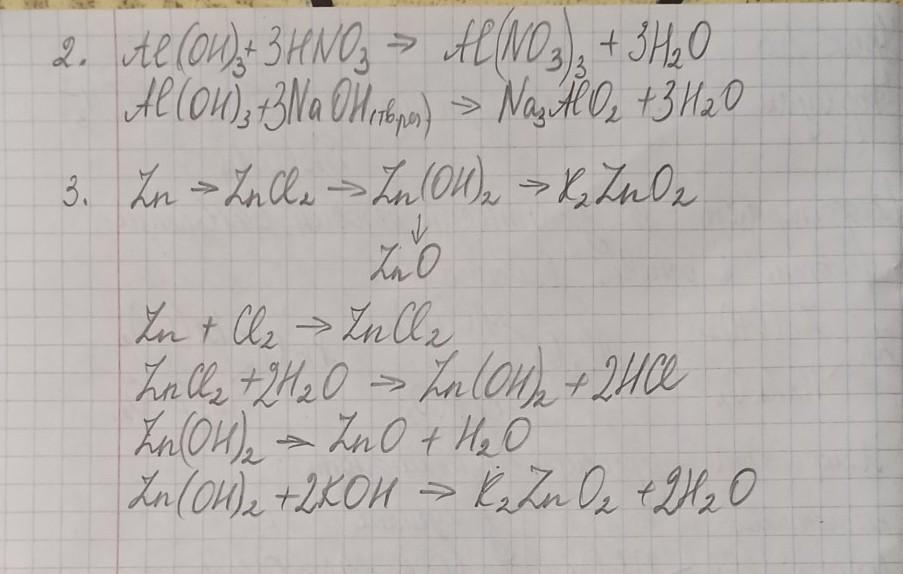 2. Al(OH)₃ + 3HNO₃ → Al(NO₃)₃ + 3H₂O
Al(OH)₃ + 3NaOH(тв, раз) → Na₃AlO₂ + 3H₂O
3. Zn → ZnCl₂ → Zn(OH)₂ → K₂ZnO₂
↓
ZnO
Zn + Cl₂ → ZnCl₂
ZnCl₂ + 2H₂O → Zn(OH)₂ + 2HCl
Zn(OH)₂ → ZnO + H₂O
Zn(OH)₂ + 2KOH → K₂ZnO₂ + 2H₂O